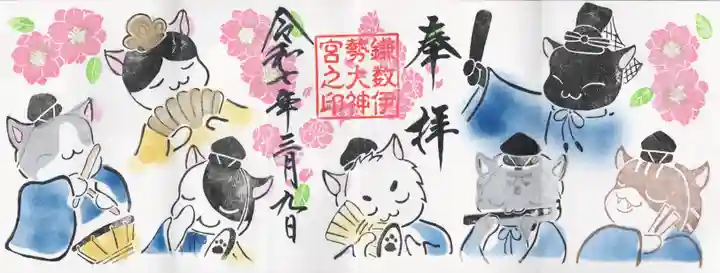 奉拝
鎌数伊
勢大神
宮之印
令和七年三月九日